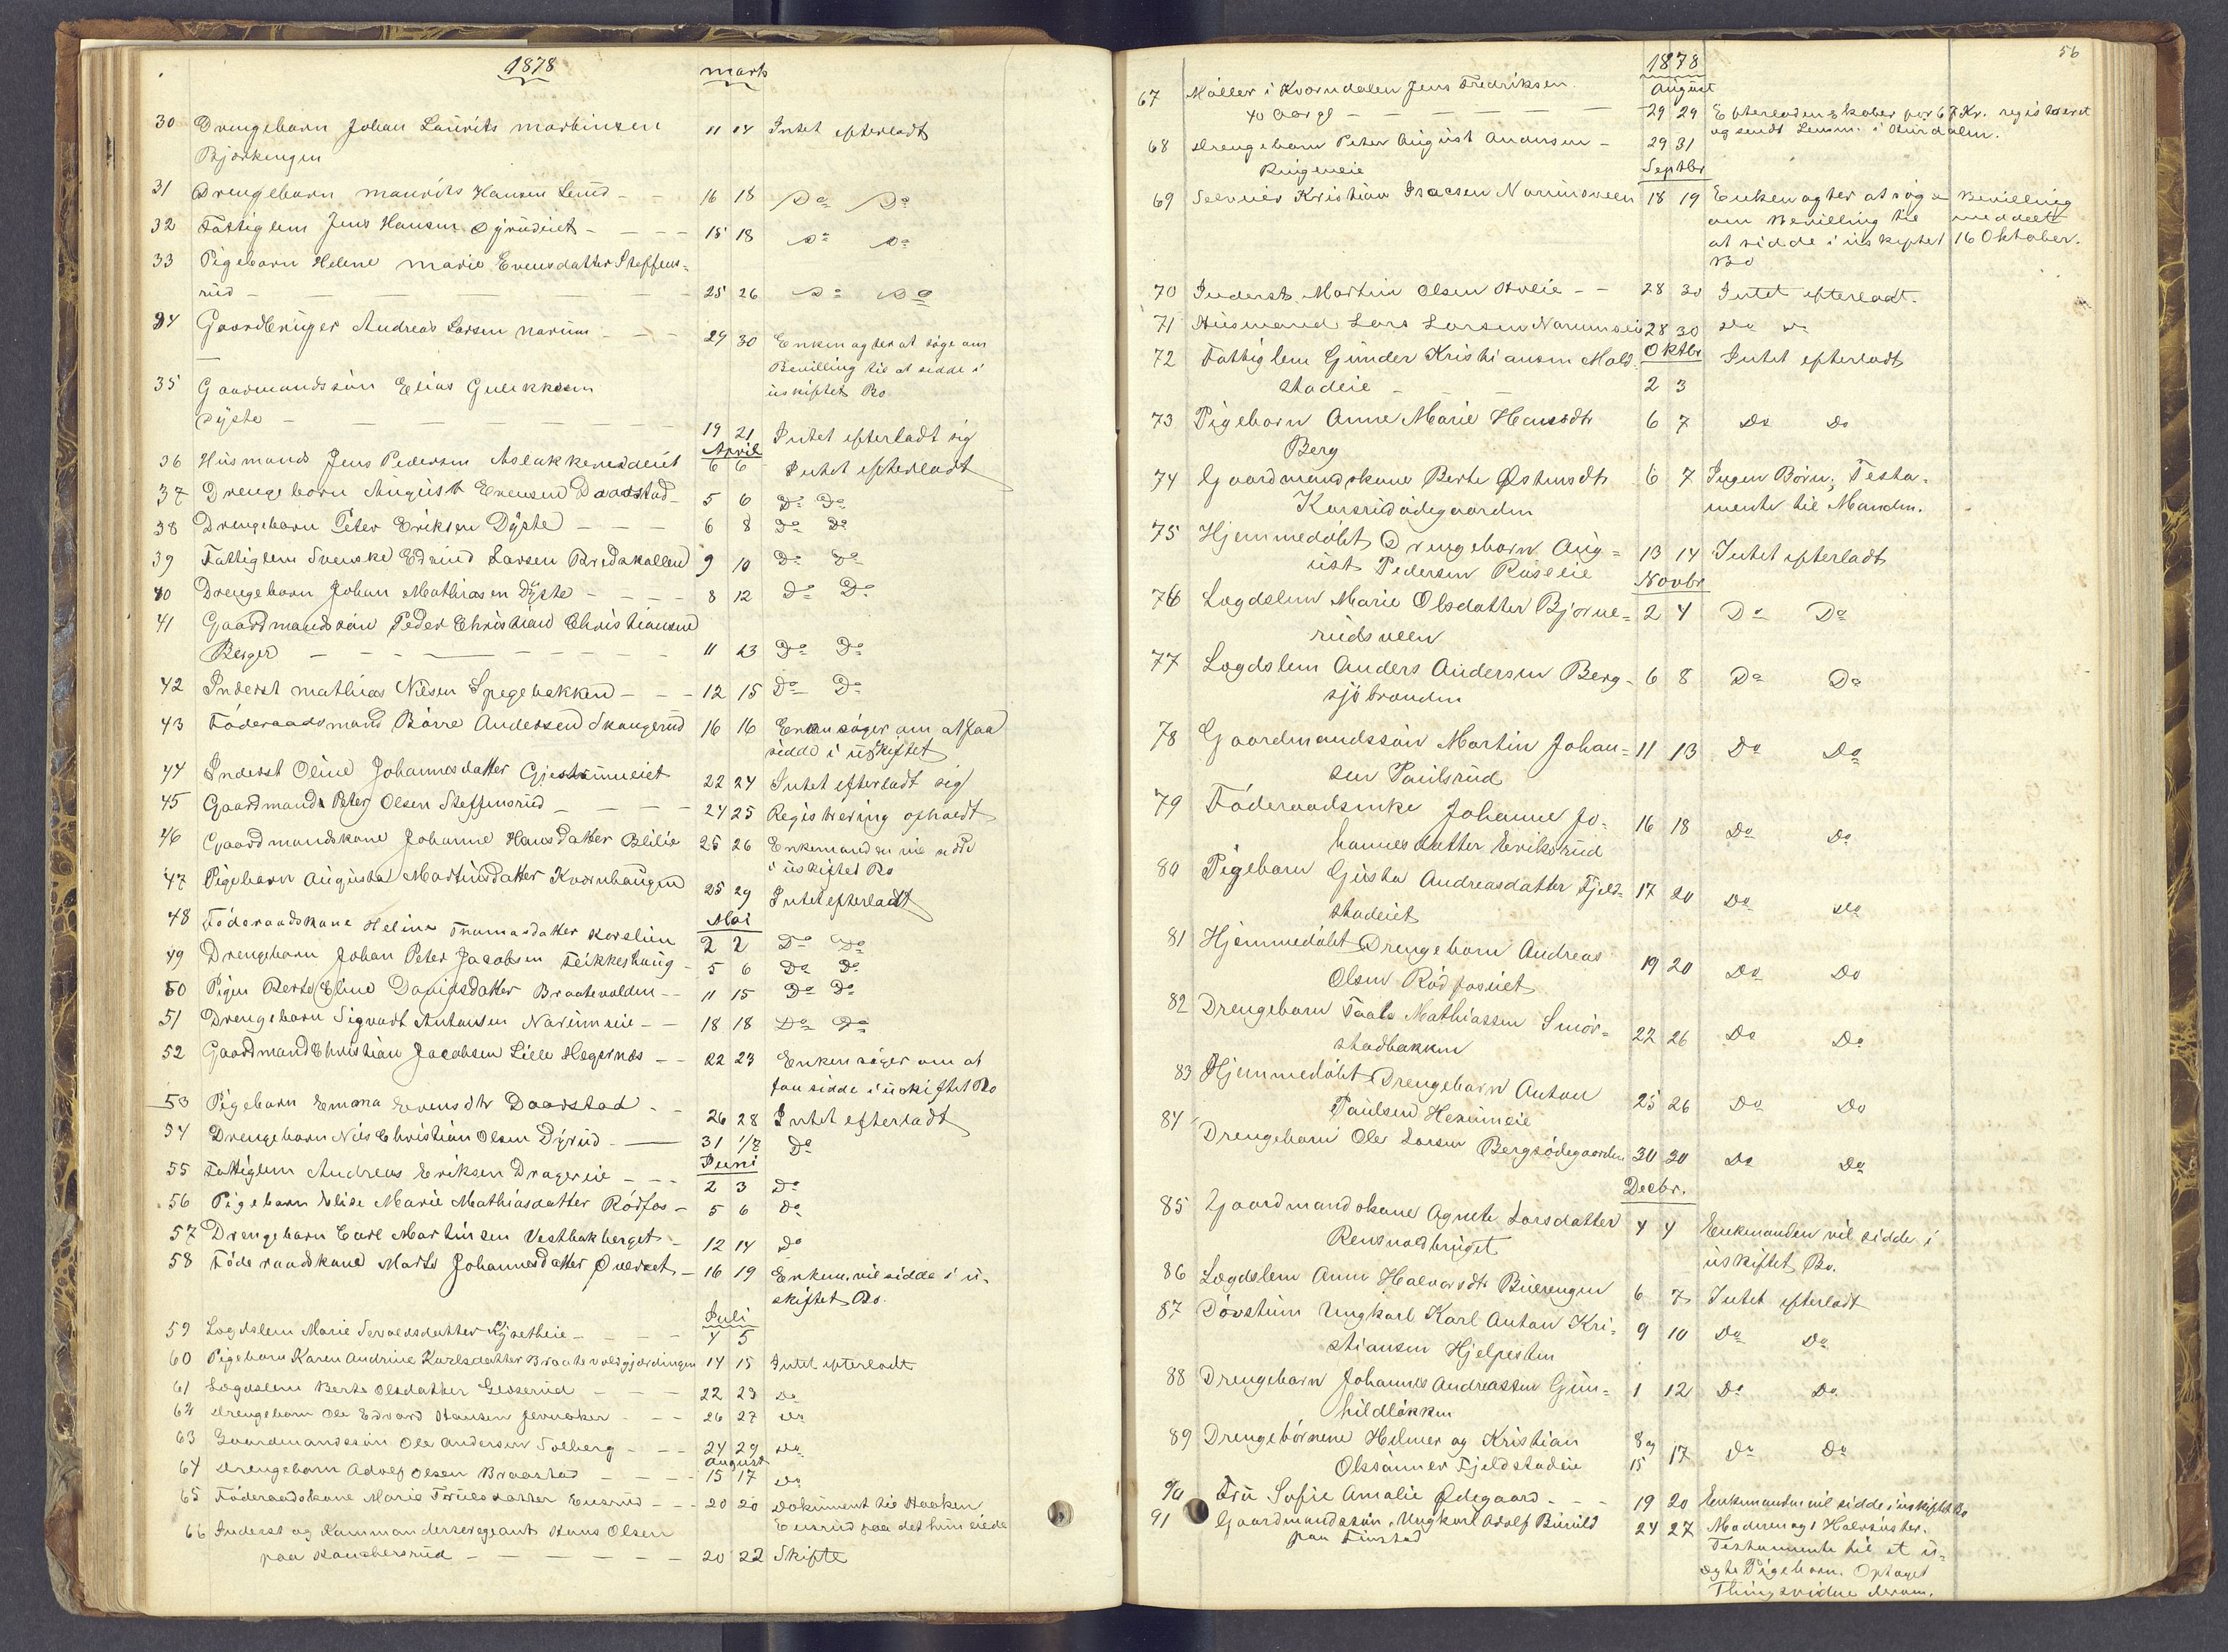 1878
marts
30 Drengebarn Johan Laurits martinsen 11 14 Intet efterladt
Bjørkengen
31 Drengebarn maurits Hansen Lund - - 16 18 Do Do
32 Fattiglem Jens Hansen Dyrudeiet - - - 15 18 Do Do
33 Pigebarn Helene marie Evensdatter Steffens-
rud - - - - - - 25 26 Do Do
34 Gaardbruger Andreas Larsen narum - - - 29 30 Enken agter at søge om
Bevilling til at sidde i
35 Gaardmandssøn Elias Gulikksen uskiftet Bo
Dyste - - - - - - - 19 21 Intet efterladt sig
April
36 Husmand Jens Pedersen Aslakkerudeiet 6 6 Intet efterladt
37 Drengebarn August Evensen Daarstad - 5 6 Do Do
38 Drengebarn Peter Eriksen Dyste - - - 6 8 Do Do
39 Fattiglem Svenske Edvind Larsen Bredskallen 9 10 Do Do
40 Drengebarn Johan Mathiasen Dyste - - - - 8 12 Do Do
41 Gaardmandssøn Peder Christian Christiansen
Berger - - - - - - - - 11 13 Do Do
42 Inderst mathias Nilsen Spegebakken - - - 12 15 Do Do
43 Føderaadsmand Børre Andersen Skaugerud 16 16 Enken søger om at faa
sidde i uskiftet
44 Inderst Oline Johannesdatter Gjestumeiet 22 24 Intet efterladt sig
45 Gaardmand Peter Olsen Steffensrud - - - - 24 25 Registrering ophævet
46 Gaardmandskone Johanne Hansdatter Blilie 25 26 Enkemanden vil sidde
i uskiftet Bo
47 Pigebarn Augusta Martinsdatter Kvernhaugen 25 29 Intet efterladt
Mai
48 Føderaadskone Helene Thomasdatter Korslien 2 2 Do Do
49 Drengebarn Johan Peter Jacobsen Feikkeshaug - 5 6 Do Do
50 Pigen Berte Eline Davidsdatter Braatevolden - - 11 15 Do Do
51 Drengebarn Sigvart Antonsen Narumeie - - 18 18 Do Do
52 Gaardmand Christian Jacobsen Lille Hegernæs - - 22 23 Enken søger om at
faa sidde i uskiftet Bo
53 Pigebarn Emma Evensdtr Daarstad - - 26 28 Intet efterladt
54 Drengebarn Nils Christian Olsen Dyrud - 31 1/7 Do
Juni
55 Fattiglem Andreas Eriksen Dragereie - - - 2 3 Do
56 Pigebarn Elise Marie Mathiasdatter Rødfos - 5 6 Do
57 Drengebarn Carl Martinsen Vestbakberget - 12 14 Do
58 Føderaadskone Marte Johannesdatter Øverset - 16 19 Enkem. vil sidde i u-
skiftet Bo.
Juli
59 Lægdslem Marie Sevaldsdatter Kjøstheie - - - - 4 5
60 Pigebarn Karen Andrine Karlsdatter Braatevoldgjordingen 14 15 Intet efterladt
61 Lægdslem Berte Olsdatter Gloserud - - - 22 23 Do
62 Drengebarn Ole Edvard Hansen Jevnaker - - - 26 27 Do
63 Gaardmandssøn Ole Andersen Solberg - - - 24 29 Do
August
64 Drengebarn Adolf Olsen Braastad - - - - 15 17 Do
65 Føderaadskone Marie Truls datter Ensrud - - - 20 20 Dokument til Haaken
Ensrud paa det hun eiede
66 Inderst og Kommandersergeant Hans Olsen
paa Kauchersrud - - - - - - 20 22 Skifte
56
1878
August
67 Møller i Kværndalen Jens Fredriksen
40 Aar gl - - - - - 29 29 Efterladenskaber for 67 Kr. registreret
og sendt Lensm. i
68 Drengebarn Peter August Andersen - 29 31
Ringeneie
Septbr
69 Selveier Kristian Isacsen Narumsveen 18 19 Enken agter at søge Bevilling
om Bevilling til meddelt
at sidde i uskiftet 16 Oktober.
Bo
70 Inderst Martin Olsen Hvleie - - 28 30 Intet efterladt.
71 Husmand Lars Larsen Narumseie 28 30 Do Do
Oktbr
72 Fattiglem Gunder Kristiansen Mold- Intet efterladt
stadeie - - - 2 3
73 Pigebarn Anne Marie Hansdtr 6 7 Do Do
Berg
74 Gaardmandskone Berte Østensdtr 6 7 Ingen Børn; Testa-
Korsrudødegaarden mente til Manden.
75 Hjemmedøbt Drengebarn Aug- 13 14 Intet efterladt
ust Pedersen Roseie
Novbr
76 Lægdslem Marie Olsdatter Bjørne- 2 4 Do Do
rudsveen
77 Lægdslem Anders Andersen Berg- 6 8 Do Do
sjøbraaden
78 Gaardmandssøn Martin Johan- 11 13 Do Do
sen Paulsrud
79 Føderaadsenke Johanne Jo- 16 18 Do Do
hannesdatter Eriksrud
80 Pigebarn Gusta Andreasdatter Fjeld- 17 20 Do Do
stadeiet
81 Hjemmedøbt Drengebarn Andreas 19 20 Do Do
Olsen Rødfoseiet
82 Drengebarn Taale Mathiassen Smør- 22 26 Do Do
stadbakken
83 Hjemmedøbt Drengebarn Anton 25 26 Do Do
Paulsen Hexumeie
84 Drengebarn Ole Larsen Bergsødegaarden 30 30 Do Do
Decbr.
85 Gaardmandskone Agnete Larsdatter 4 4 Enkemanden vil sidde i
Rensvoldbruget uskiftet Bo.
86 Lægdslem Anne Halvorsdtr Buerengen 6 7 Intet efterladt
87 Døvstum Ungkarl Karl Anton Kri- 9 10 Do Do
stiansen Hjelpesten
88 Drengebarn Johannes Andreassen Gun- 1 12 Do Do
hildløkken
89 Drengebørnene Helmer og Kristian 8 og 17 Do Do
Olssønner Fjeldstadeie 15
90 Fru Sofie Amalie Ødegaard - - - 19 20 Enkemanden vil sidde i uskiftet Bo
91 Gaardmandssøn, Ungkarl Adolf Burull 24 27 Moderen og 1 Halvsøster.
paa Finstad Testamente til et u-
ægte Pigebarn. Optaget
Thingsvidne derom.